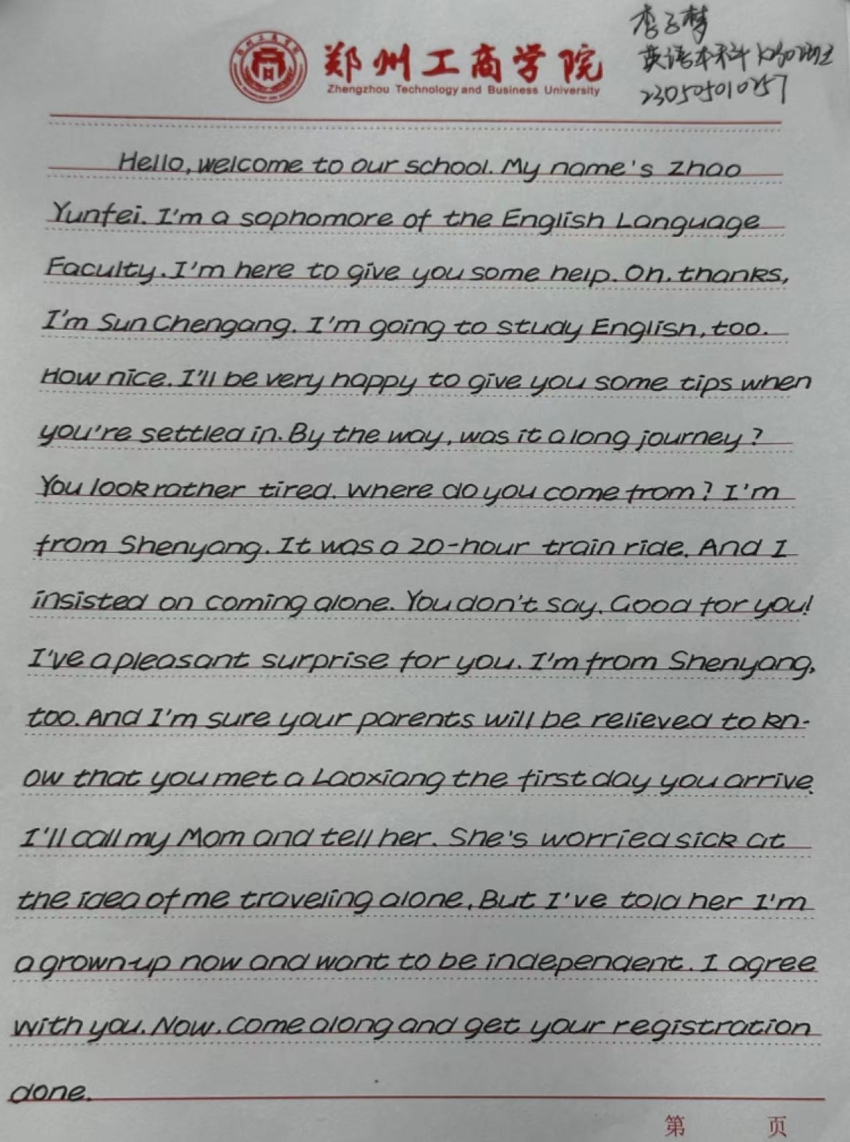 郑州工商学院
Zhengzhou Technology and Business University
李子梦
英语本科
230505010257
Hello, welcome to our school. My name's Zhao
Yunfei. I'm a sophomore of the English Language
Faculty. I'm here to give you some help. Oh, thanks,
I'm Sun Chengang. I'm going to study English, too.
How nice. I'll be very happy to give you some tips when
you're settled in. By the way, was it a long journey?
You look rather tired. Where do you come from? I'm
from Shenyang. It was a 20-hour train ride. And I
insisted on coming alone. You don't say. Good for you!
I've a pleasant surprise for you. I'm from Shenyang,
too. And I'm sure your parents will be relieved to kn-
ow that you met a Laoxiang the first day you arrive.
I'll call my Mom and tell her. She's worried sick at
the idea of me traveling alone. But I've told her I'm
a grown-up now and want to be independent. I agree
with you. Now. Come along and get your registration
done.
第 页